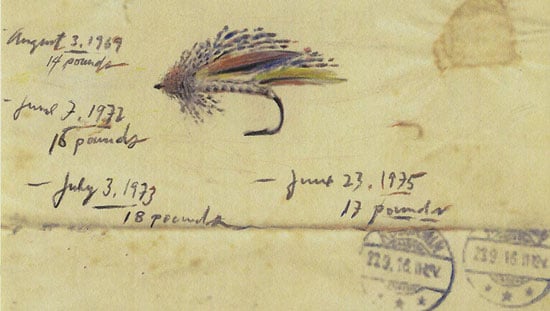 August 3, 1969
14 pounds
- June 7, 1972
16 pounds
- July 3, 1973
18 pounds
- June 23, 1975
17 pounds
23.9.16.
23.9.16.